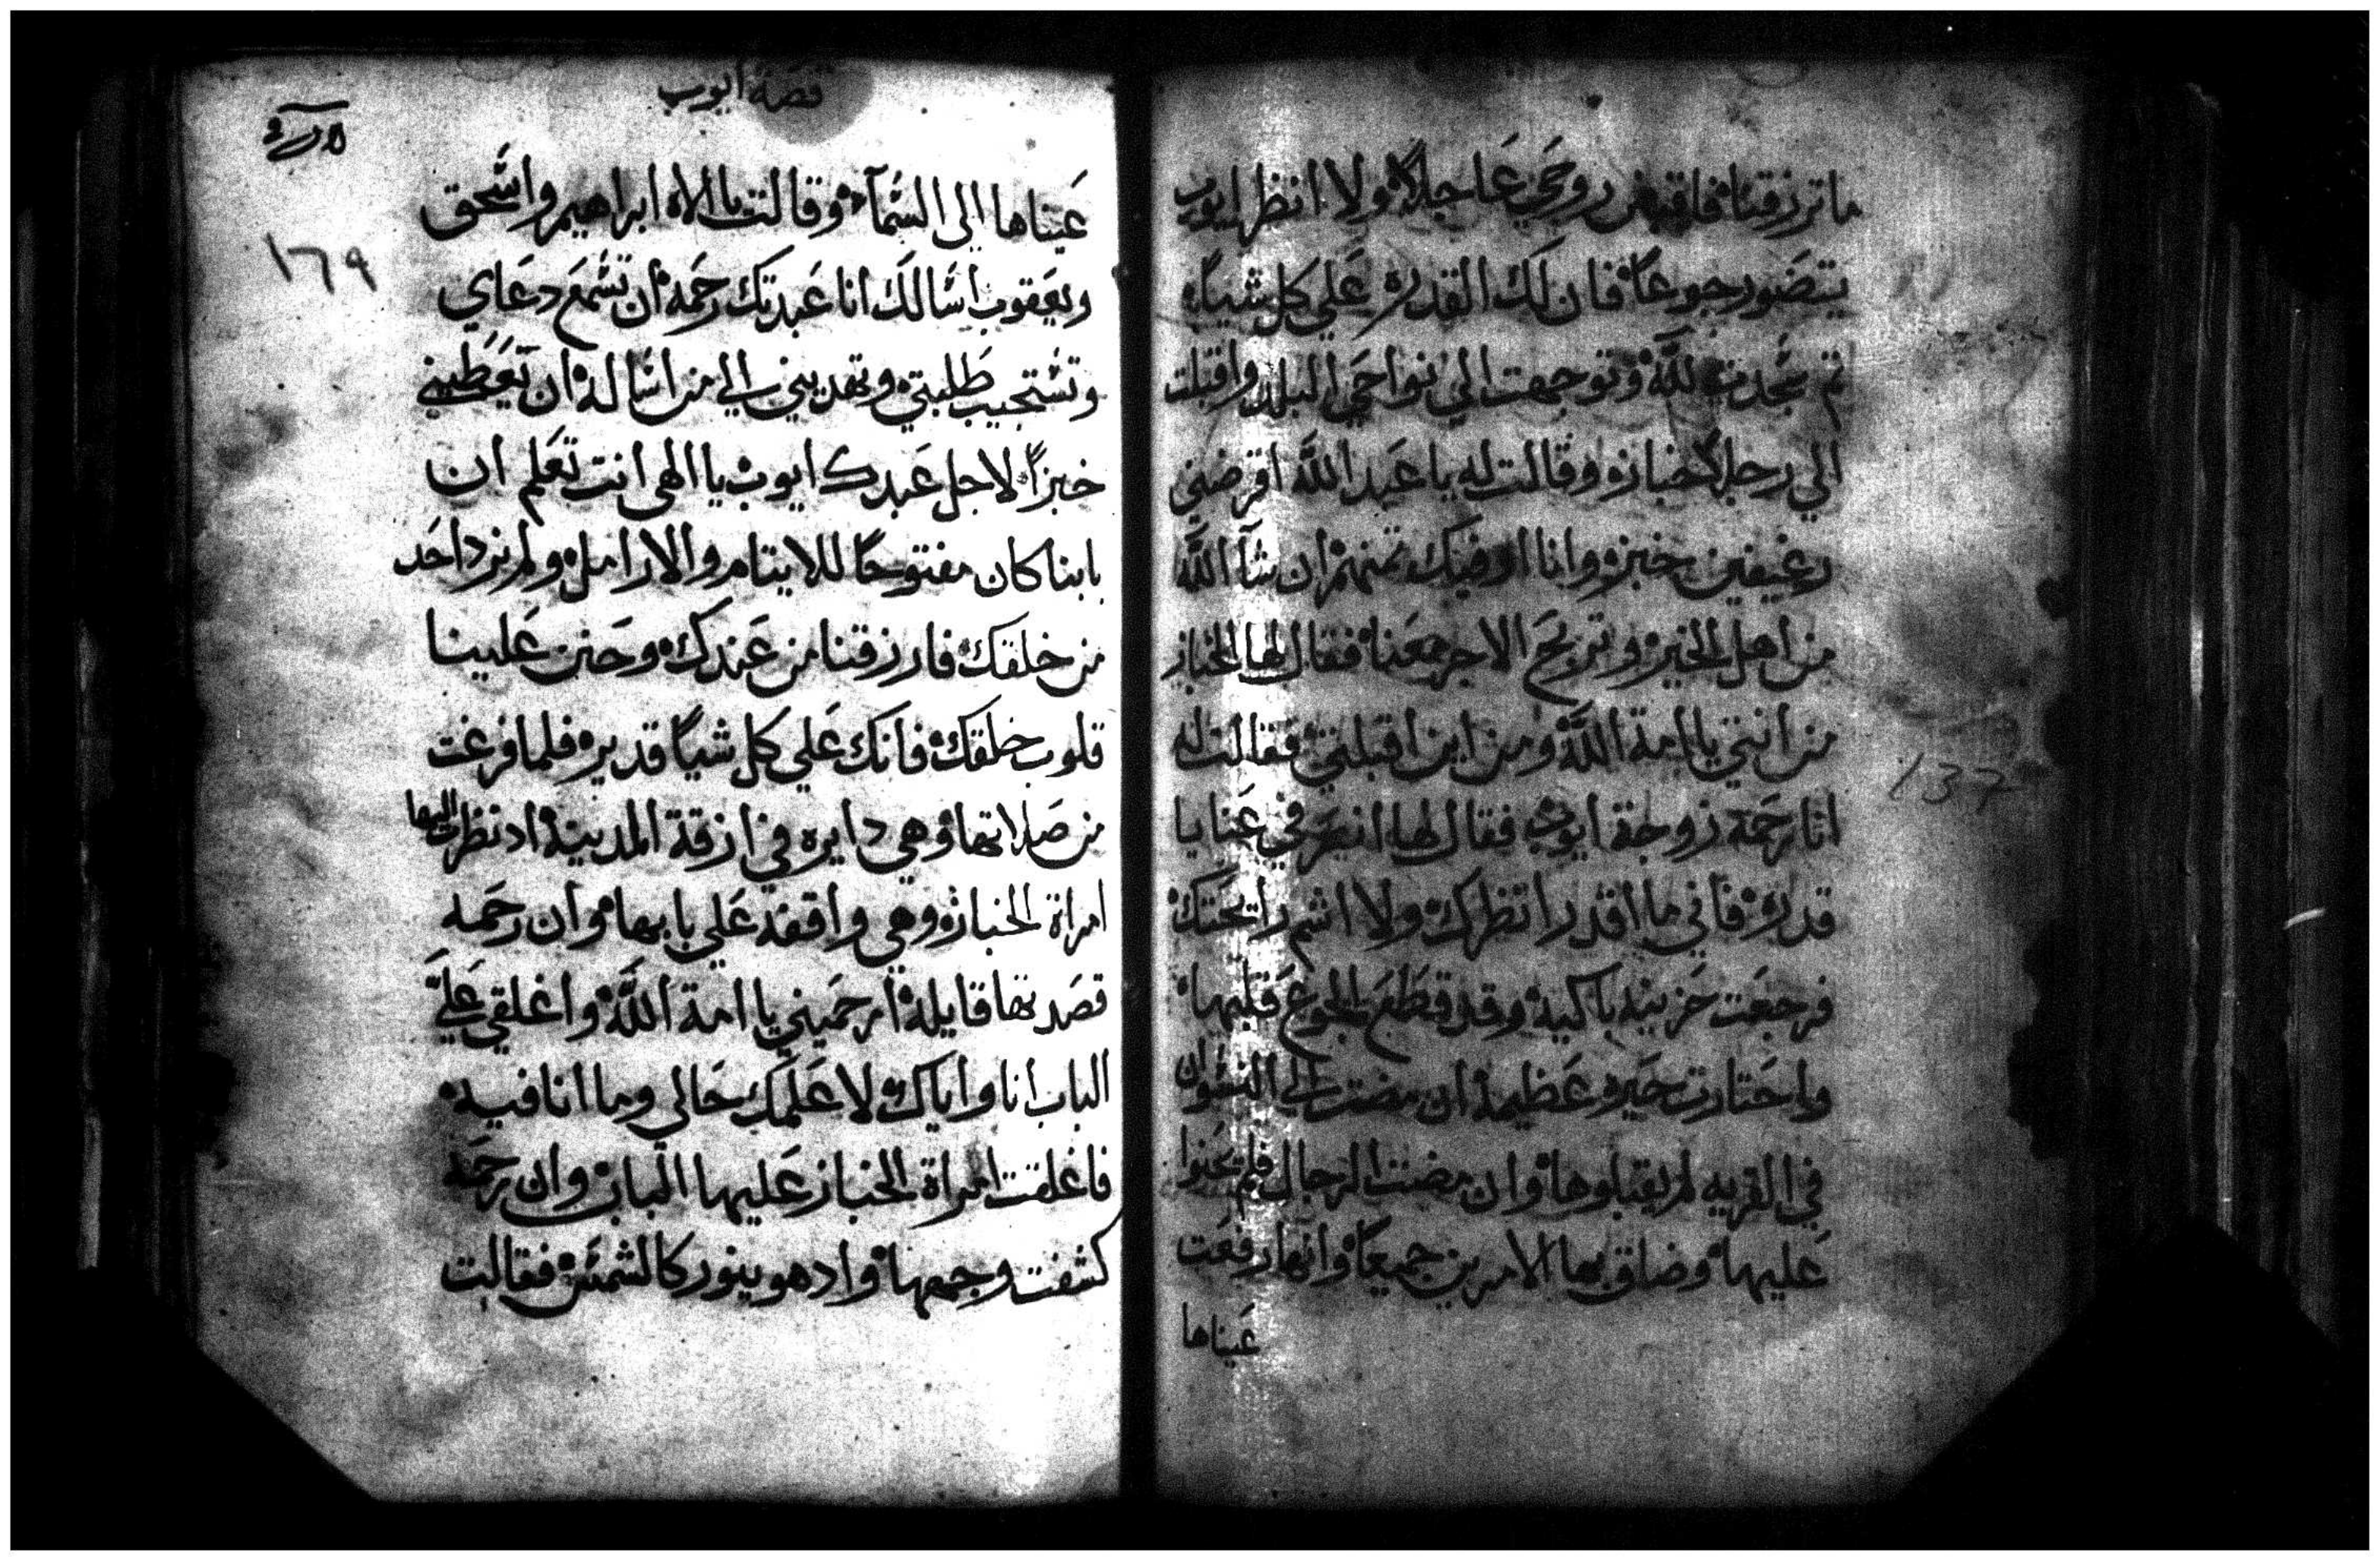 ما ترزقنا فاقبض روحي عاجلاً ولا انظر ايوب
يتضور جوعاً فان لك القدره علي كل شياً
تم سجدت لله وتوجهت الي نواحي البلد واقبلت
الي رجلاً خبازه وقالت له يا عبد الله اقرضني
رغيفين خبزه وانا اوفيك تمنهم ان شآ الله
من اهل الخير وتربح الاجر معنا فقال لها الخباز
من انتي يا امة الله ومن اين اقبلتي فقالت له
انا رحمة زوجة ايوب فقال لها انصرفي عنا يا
قدره فاني ما اقدر انظرك ولا اشم رايحتك
فرجعت حزينه باكيه وقد قطع الجوع قلبها
واحتارت حيره عظيمه ان مضت الي النسوان
في القريه لم يقبلوها وان مضت الرجال فلم يحنوا
عليها وضاق بها الامرين جميعاً وانها رفعت
عيناها
137
قصة ايوب
١٦٩
عيناها الي السمآ وقالت يا الاه ابراهيم واسحق
ويعقوب اسالك انا عبدتك رحمه ان تسمع دعاي
وتستجيب طلبتي وتهديني الي من اساله ان يعطيني
خبزاً لاجل عبدك ايوب يا الهي انت تعلم ان
بابنا كان مفتوحاً للايتام والارامل ولم نرد احد
من خلقك فارزقنا من عندك وحنن علينا
قلوب خلقك فانك علي كل شياً قدير فلما فرغت
من صلاتها وهي دايره في ازقة المدينه اد نظرت اليها
امراة الخبازه وهي واقفه علي بابها وان رحمه
قصدتها قايله ارحميني يا امة الله واغلقي عليَّ
الباب انا واياك لا علمك حالي وما انا فيه
فاغلقت امراة الخباز عليها الباب وان رحمه
كشفت وجهها واد هو ينور كالشمس فقالت